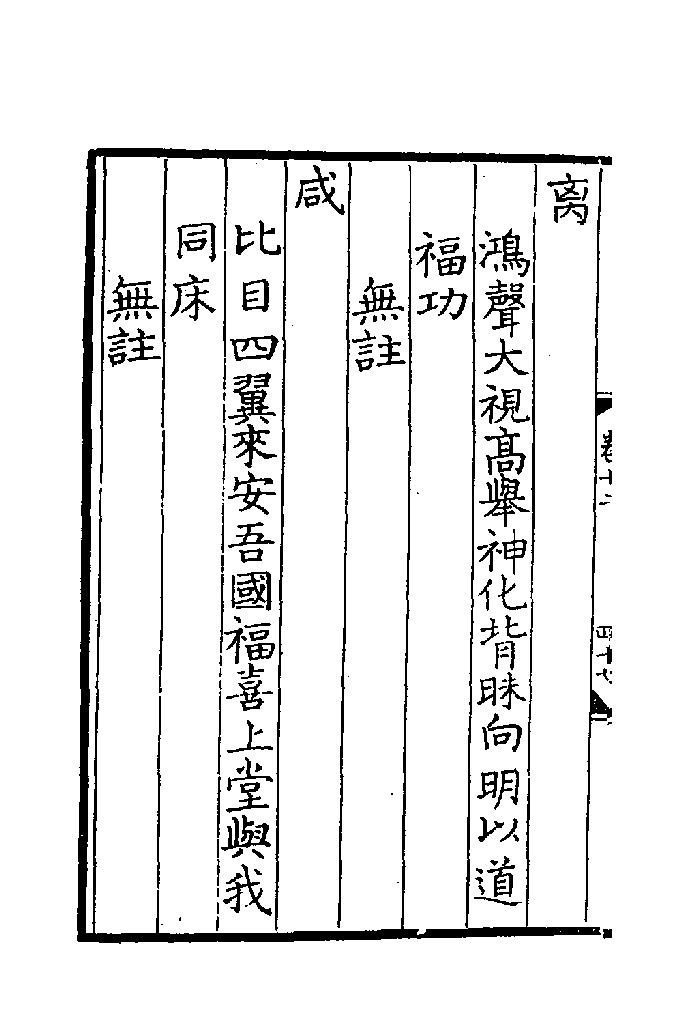 离
鴻聲大視高舉神化背昧向明以道
福功
無註
咸
比目四翼來安吾國福喜上堂與我
同床
無註